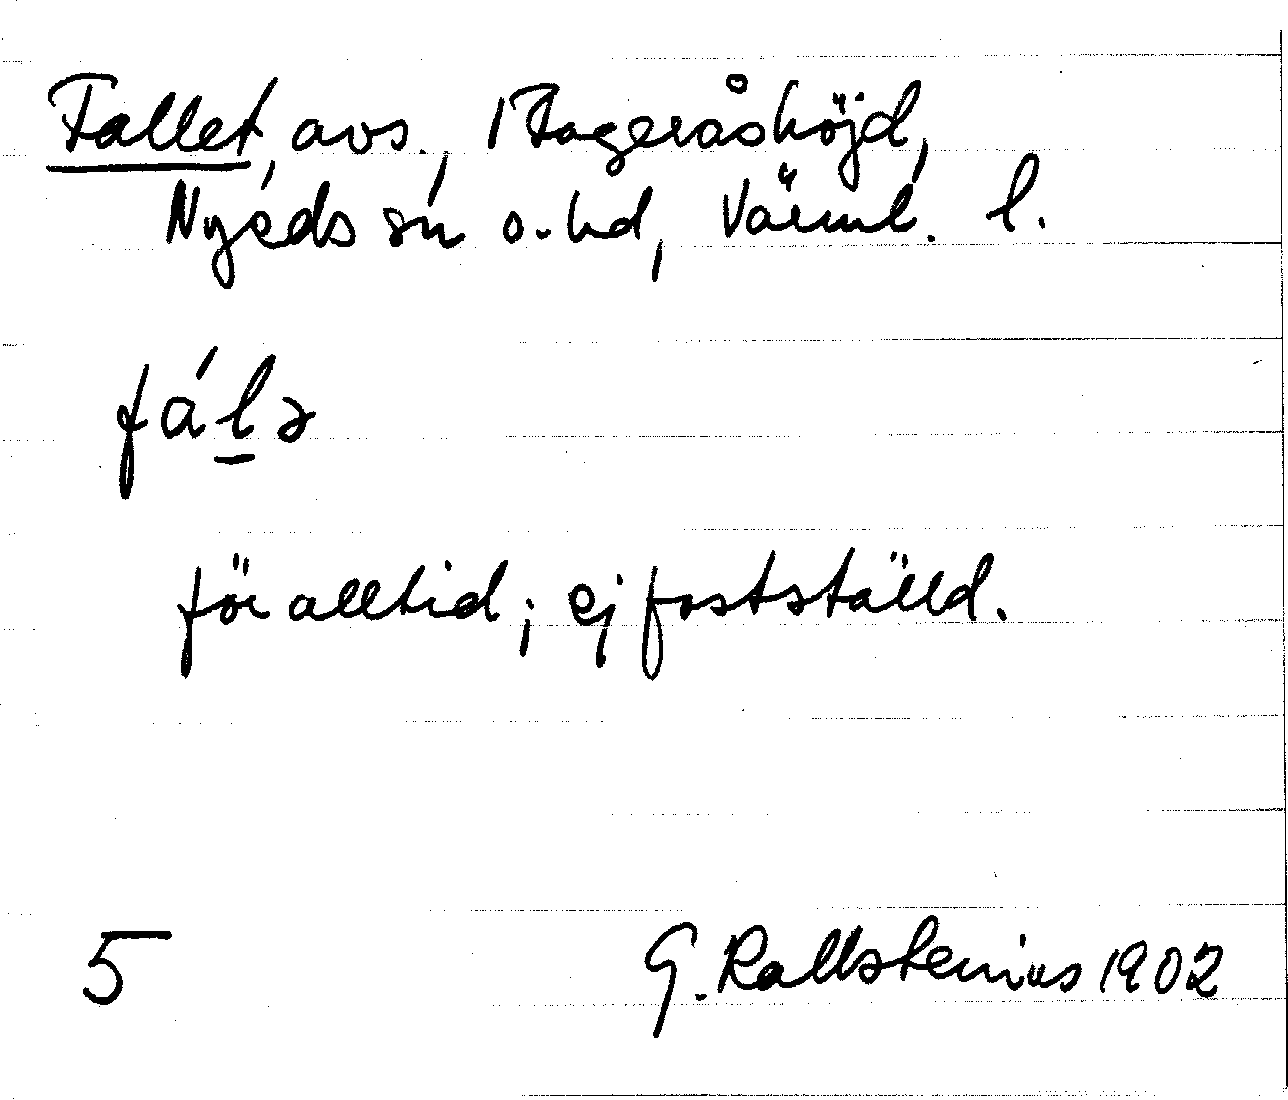 Fallet, avs., 1 Hageråshöjd,
Nyeds sn o. hd, Värml. l.
fál̲ə
för alltid; ej fastställd.
5 G. Kallstenius 1902